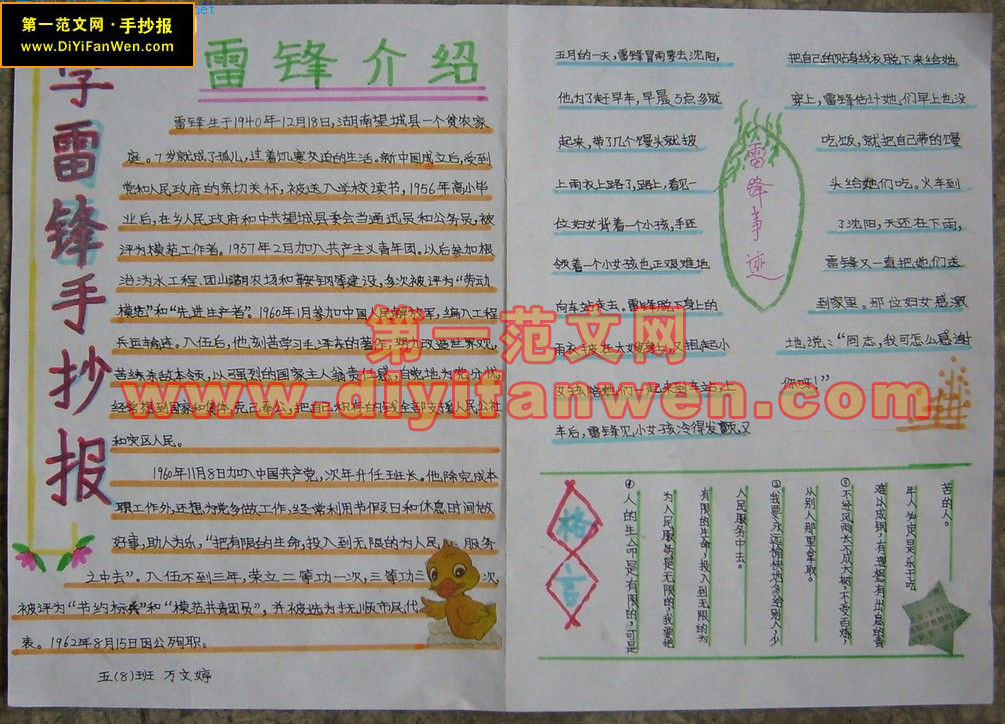 第一范文网·手抄报
www.DiYiFanWen.com
学雷锋手抄报
雷锋介绍
雷锋生于1940年12月18日,湖南望城县一个贫农家
庭。7岁就成了孤儿,过着饥寒交迫的生活。新中国成立后,受到
党和人民政府的亲切关怀,被送入学校读书,1956年高小毕
业后,在乡人民政府和中共望城县委会当通迅员和公务员,被
评为模范工作者。1957年2月加入共产主义青年团。以后参加根
治沩水工程、团山湖农场和鞍钢等建设,多次被评为“劳动
模范”和“先进生产者”。1960年1月参加中国人民解放军,编入工程
兵运输连。入伍后,他刻苦学习毛泽东的著作,努力改造世界观,
苦练杀敌本领,以强烈的国家主人翁责任感,自觉地为党分忧,
经常想到国家和集体,克己奉公,把自己积存的钱全部支援人民公社
和灾区人民。
1960年11月8日加入中国共产党,次年升任班长。他除完成本
职工作外,还想为党多做工作,经常利用节假日和休息时间做
好事,助人为乐,“把有限的生命,投入到无限的为人民服务
之中去”。入伍不到三年,荣立二等功一次,三等功三次,
被评为“节约标兵”和“模范共青团员”,并被选为抚顺市民代
表。1962年8月15日因公殉职。
五(8)班 万文婷
雷锋事迹
五月的一天,雷锋冒雨要去沈阳,
他为了赶早车,早晨5点多就
起来,带了几个馒头就披
上雨衣上路了,路上,看见一
位妇女背着一个小孩,手还
领着一个小女孩也正艰难地
向车站走去。雷锋脱下身上的
雨衣披在大嫂身上,又抱起小
女孩陪她们一起来到车站,上
车后,雷锋见小女孩冷得发颤,又
把自己的贴身线衣脱下来给她
穿上,雷锋估计她们早上也没
吃饭,就把自己带的馒
头给她们吃。火车到
了沈阳,天还在下雨,
雷锋又一直把她们送
到家里。那位妇女感激
地说:“同志,我可怎么感谢
你呀!”
第一范文网
www.diyifanwen.com
格言
①人的生命是有限的,可是
为人民服务是无限的,我要把
有限的生命,投入到无限的为
人民服务中去。
②我要永远愉快地多给别人,少
从别人那里拿取。
③不经风雨,长不成大树,不受百炼,
难以成钢,有理想有出息的青
年人必定是乐于吃
苦的人。